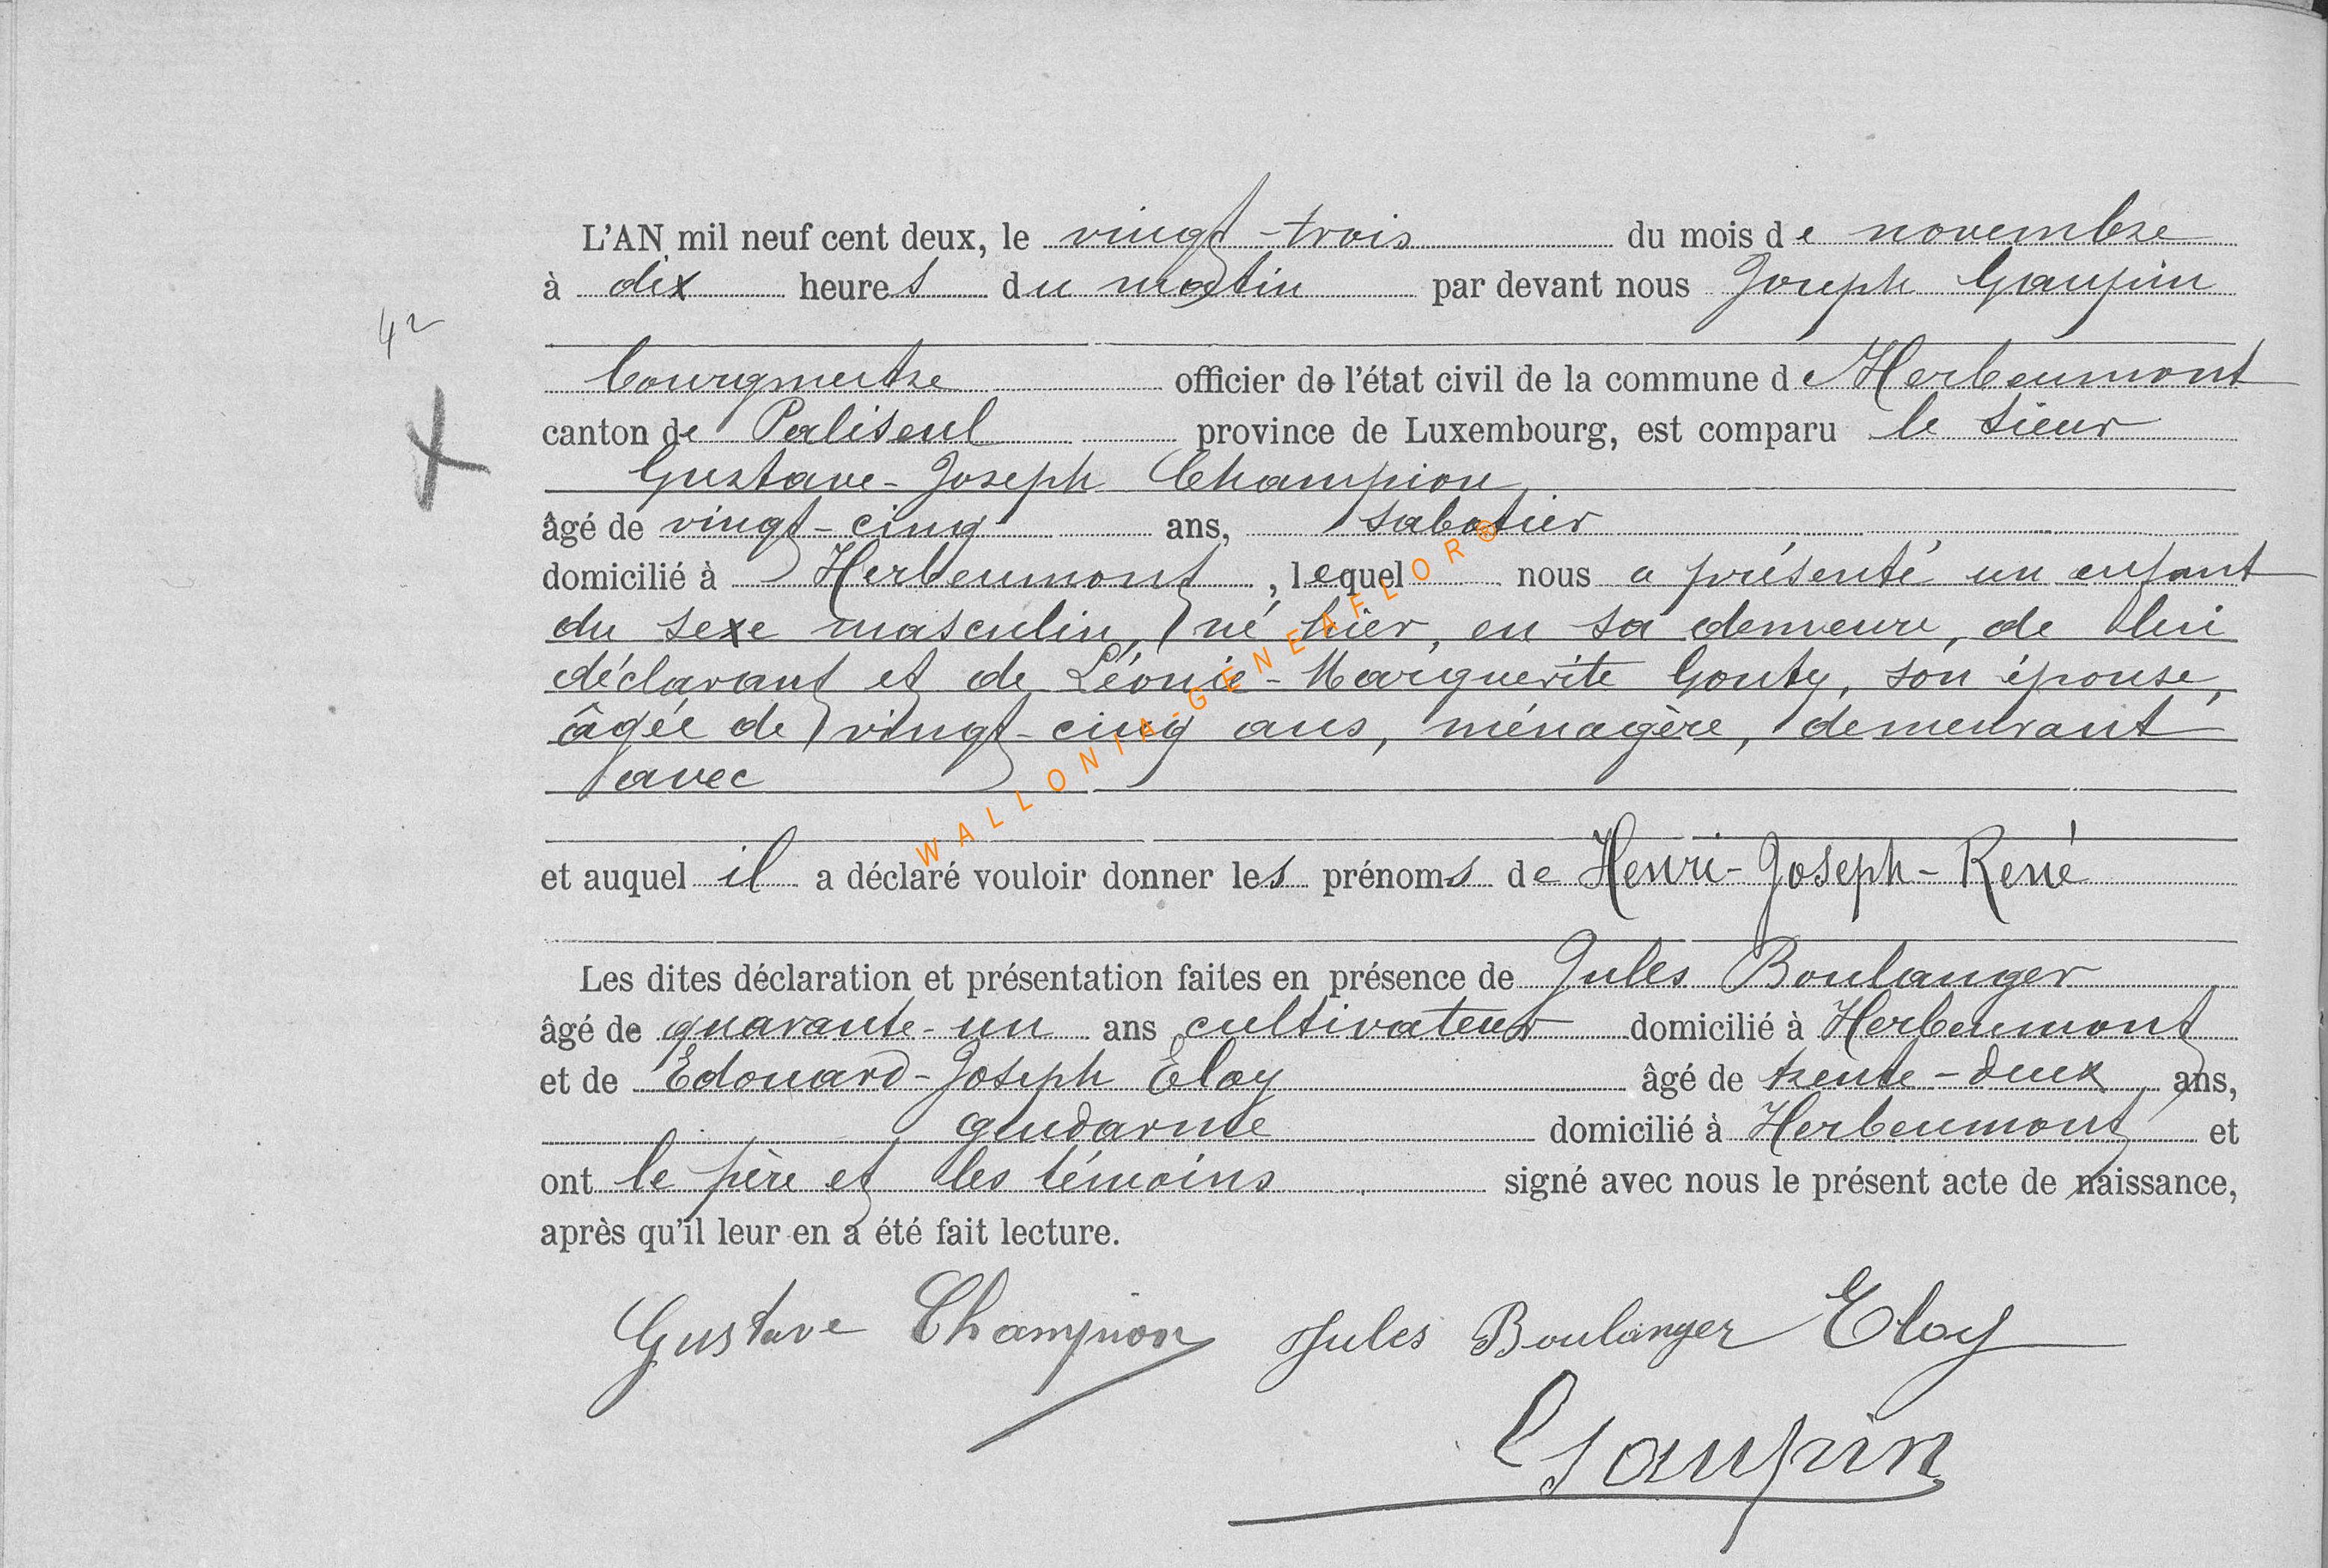 L'AN mil neuf cent deux, le vingt-trois du mois de novembre
à dix heures du matin par devant nous Joseph Gaupin
42
bourgmestre officier de l'état civil de la commune de Herbeumont
canton de Paliseul province de Luxembourg, est comparu le sieur
Gustave-Joseph Champion,
âgé de vingt-cinq ans, sabotier
domicilié à Herbeumont, lequel nous a présenté un enfant
du sexe masculin, né hier, en sa demeure, de lui
déclarant et de Léonie-Marguerite Gonty, son épouse,
âgée de vingt-cinq ans, ménagère, demeurant
avec
et auquel il a déclaré vouloir donner les prénoms de Henri-Joseph-René
Les dites déclaration et présentation faites en présence de Jules Boulanger
âgé de quarante-un ans cultivateur domicilié à Herbeumont
et de Edouard-Joseph Eloy âgé de trente-deux ans,
gendarme domicilié à Herbeumont et
ont le père et les témoins signé avec nous le présent acte de naissance,
après qu'il leur en a été fait lecture.
Gustave Champion Jules Boulanger Eloy
Gaupin
WALLONIA-GENEAFLOR®